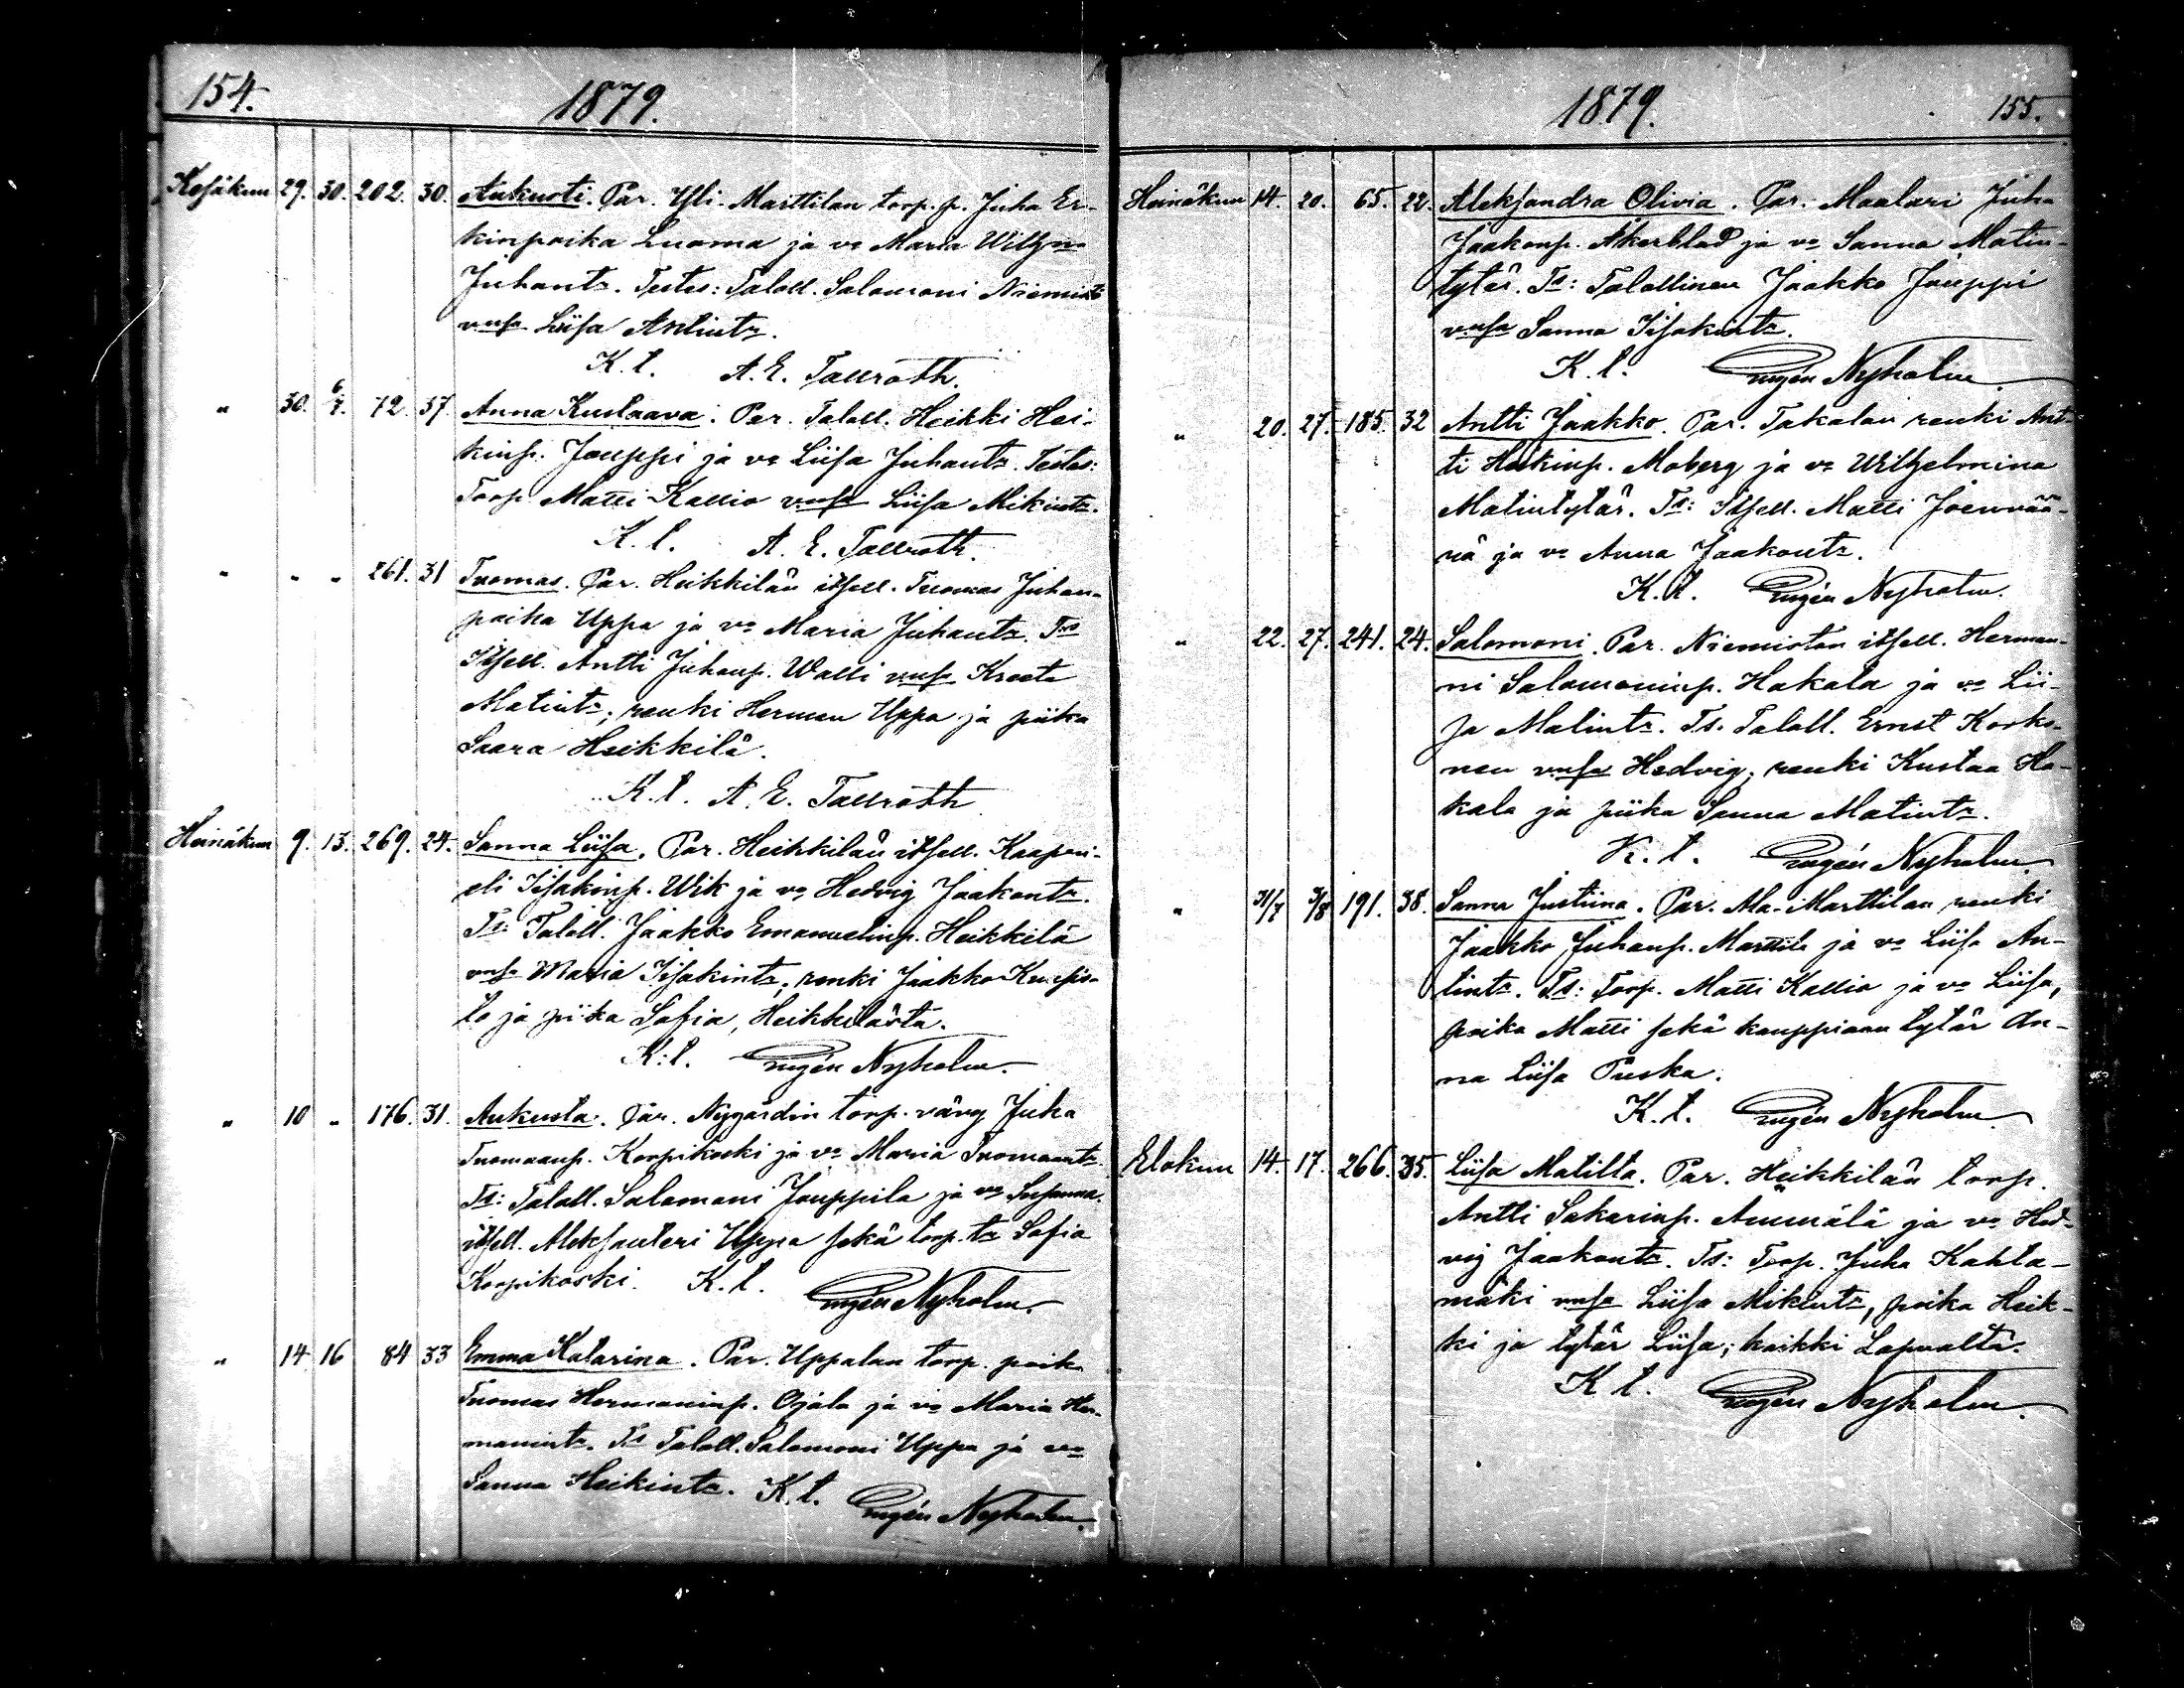 154.
1879.
Kesäkuu 29. 30. 202. 30. Aukusti. Par. Yli-Marttilan torp. p. Juha Er-
kinpoika Luoma ja vo Maria Wilhjna
Juhantr. Testes: Taloll. Salomoni Niemistö
vmsa Liisa Antintr.
K. l. A. E. Tallroth.
" 30. 6/7. 72. 37. Anna Kustaava. Par. Taloll. Heikki Hei-
kinp. Jouppi ja vo Liisa Juhantr. Testes:
Torp. Matti Kallio vmsa Liisa Mikintr.
K. l. A. E. Tallroth.
" " " 261. 31 Tuomas. Par. Heikkilän itsell. Tuomas Juhan-
poika Uppa ja vo Maria Juhantr. Tes
Itsell. Antti Juhanp. Walli vmsa Kreeta
Matintr; renki Herman Uppa ja piika
Saara Heikkilä.
K. l. A. E. Tallroth
Heinäkuu 9. 13. 269. 24. Sanna Liisa. Par. Heikkilän itsell. Kaapri-
eli Iisakinp. Wik ja vo Hedvig Jaakontr.
Ts: Taloll. Jaakko Emanuelinp. Heikkilä
vmsa Maria Iisakintr; renki Jaakko
to ja piika Sofia, Heikkilästä.
K. l. Eugén Nyholm.
" 10 " 176. 31. Aukusta. Par. Nygårdin torp. vävy Juha
Tuomaanp. Korpikoski ja vo Maria Tuomaantr.
Ts: Taloll. Salomoni Jouppila ja vo Susanna.
itsell. Aleksanteri Uppa sekä torp. tr Sofia
Korpikoski. K. l. Eugén Nyholm.
" 14 16 84 33 Emma Katarina. Par. Uppalan torp. poika
Tuomas Hermaninp. Ojala ja vo Maria Her-
manintr. Ts Taloll. Salomoni Uppa ja vo
Sanna Heikintr. K. l. Eugén Nyholm.
1879.
155.
Heinäkuu 14. 20. 65. 22. Aleksandra Olivia. Par. Maalari Juha
Jaakonp. Åkerblad ja vo Sanna Matin-
tytär. Ts: Talollinen Jaakko Jouppi
vmsa Sanna Iisakintr.
K. l. Eugén Nyholm.
" 20. 27. 185. 32 Antti Jaakko. Par. Takalan renki Ant-
ti Heikinp. Moberg ja vo Wilhelmina
Matintytär. Ts: Itsell. Matti Joenvää-
rä ja vo Anna Jaakontr.
K. l. Eugén Nyholm.
" 22. 27. 241. 24. Salomoni. Par. Niemistön itsell. Herman-
ni Salomoninp. Hakala ja vo Lii-
sa Matintr. Ts. Taloll. Ernst Korko-
nen vmsa Hedvig; renki Kustaa Ha-
kala ja piika Sanna Matintr.
K. l. Eugén Nyholm.
" 31/7 3/8 191. 38. Sanna Justiina. Par. Ala-Marttilan renki
Jaakko Juhanp. Marttila ja vo Liisa An-
tintr. Ts: Torp. Matti Kallio ja vo Liisa,
poika Matti sekä kauppiaan tytär An-
na Liisa Puska.
K. l. Eugén Nyholm
Elokuu 14. 17. 266. 35. Liisa Matilta. Par. Heikkilän torp.
Antti Sakarinp. Ammälä ja vo Hed-
vig Jaakontr. Ts: Torp. Juha Kahla-
mäki vmsa Liisa Mikintr, poika Heik-
ki ja tytär Liisa; kaikki Lapualta.
K l. Eugén Nyholm.